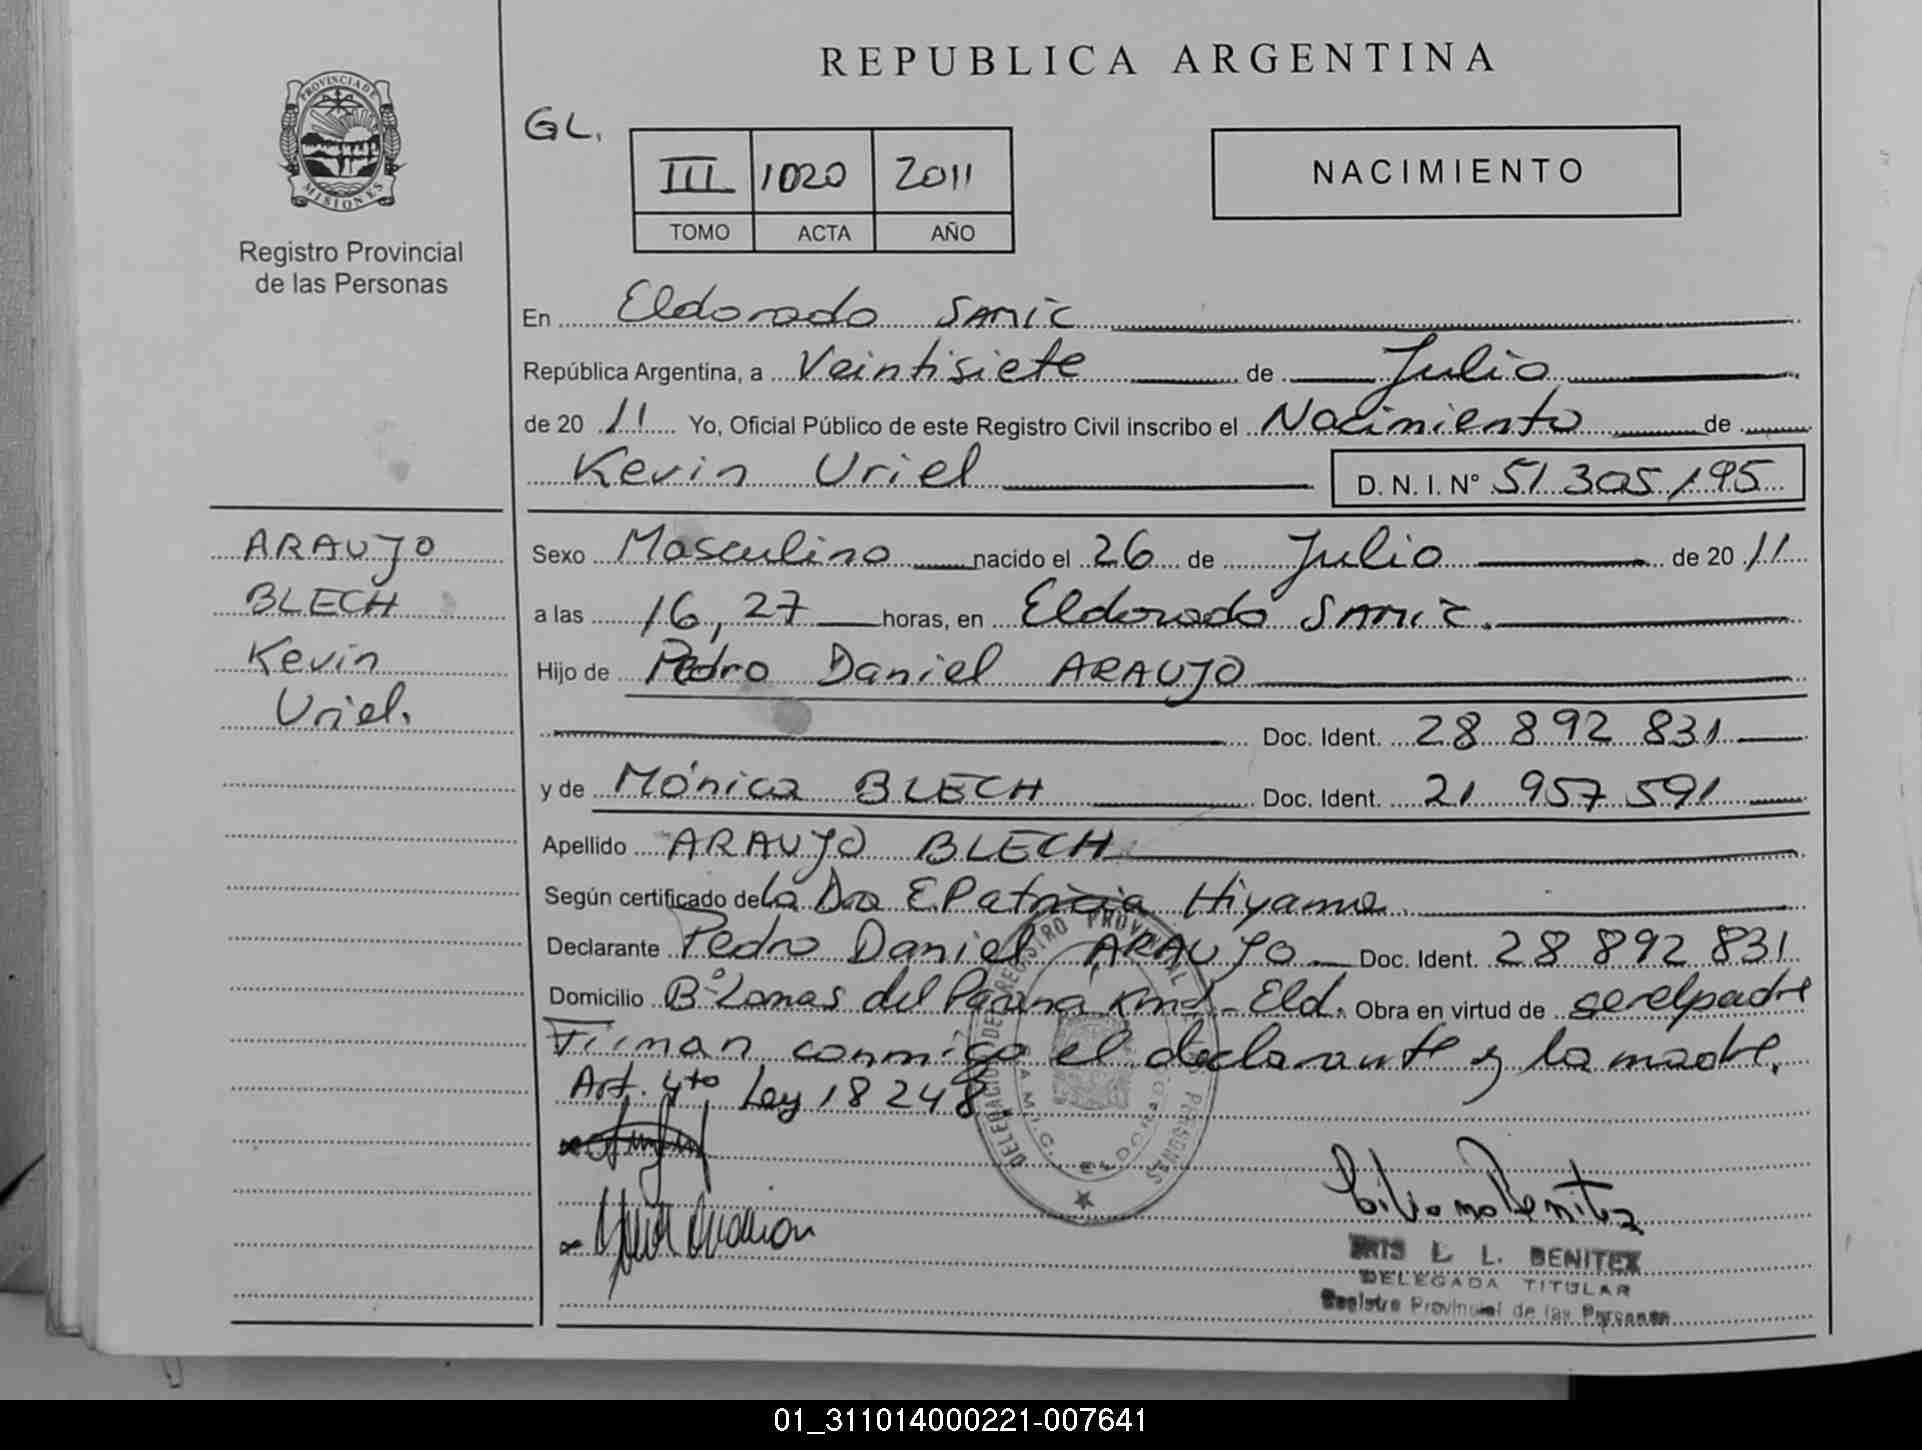 REPUBLICA ARGENTINA
PROVINCIA DE
MISIONES
Registro Provincial
de las Personas
GL.
III 1020 2011
TOMO ACTA AÑO
NACIMIENTO
En Eldorado SAMIC
República Argentina, a Veintisiete de Julio
de 20 11 Yo, Oficial Público de este Registro Civil inscribo el Nacimiento de
Kevin Uriel D. N. I. N° 51 305 195
ARAUJO
BLECH
Kevin
Uriel.
Sexo Masculino nacido el 26 de Julio de 20 11
a las 16,27 horas, en Eldorado SAMIC.
Hijo de Pedro Daniel ARAUJO
Doc. Ident. 28 892 831
y de Mónica BLECH Doc. Ident. 21 957 591
Apellido ARAUJO BLECH
Según certificado de la Dra E. Patricia Hiyama
Declarante Pedro Daniel ARAUJO Doc. Ident. 28 892 831
Domicilio B° Lomas del Parana Km - Eld. Obra en virtud de ser el padre
Firman conmigo el declarante y la madre.
Art. 4to Ley 18 248.
DELEGACION DEL REGISTRO PROVINCIAL DE LAS PERSONAS
S.A.M.I.C. ELDORADO
IRIS L. L. BENITEZ
DELEGADA TITULAR
Registro Provincial de las Personas
01_311014000221-007641